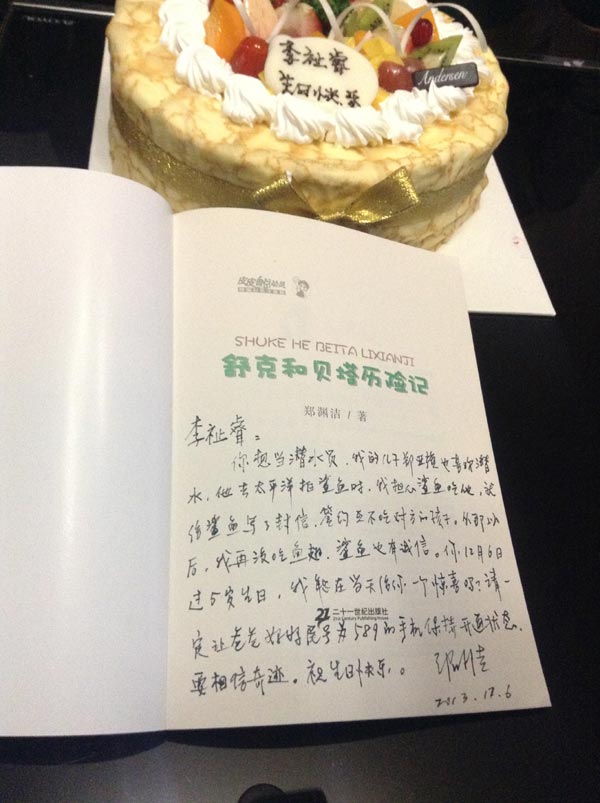 李祉睿
生日快乐
Andersen
皮皮鲁总动员
SHUKE HE BEITA LIXIANJI
舒克和贝塔历险记
郑渊洁 / 著
李祉睿：
你想当潜水员，我的儿子郑亚旗也喜欢潜
水，他去太平洋拍鲨鱼时，我担心鲨鱼吃他，就
给鲨鱼写了封信，签约互不吃对方的孩子。从那以
后，我再没吃鱼翅，鲨鱼也有诚信。你12月6日
过5岁生日，我能在当天给你一个惊喜吗？请一
二十一世纪出版社
21st Century Publishing House
定让爸爸妈妈尾号为589的手机保持开通状态。
要相信奇迹。祝生日快乐。 郑渊洁
2013.12.6